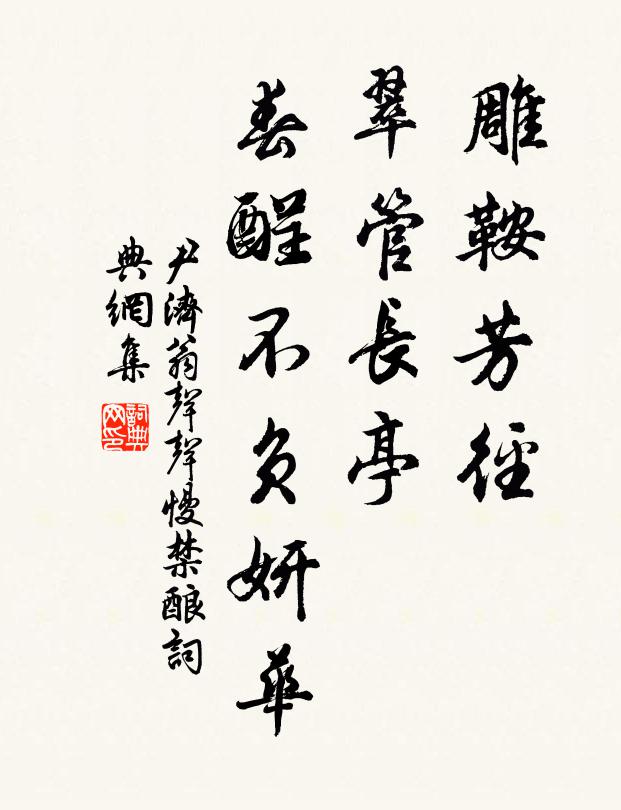 雕鞍芳徑
翠管長亭
春醒不負妍華
尹濟翁聲聲慢禁釀詞
典網集
詞典网印